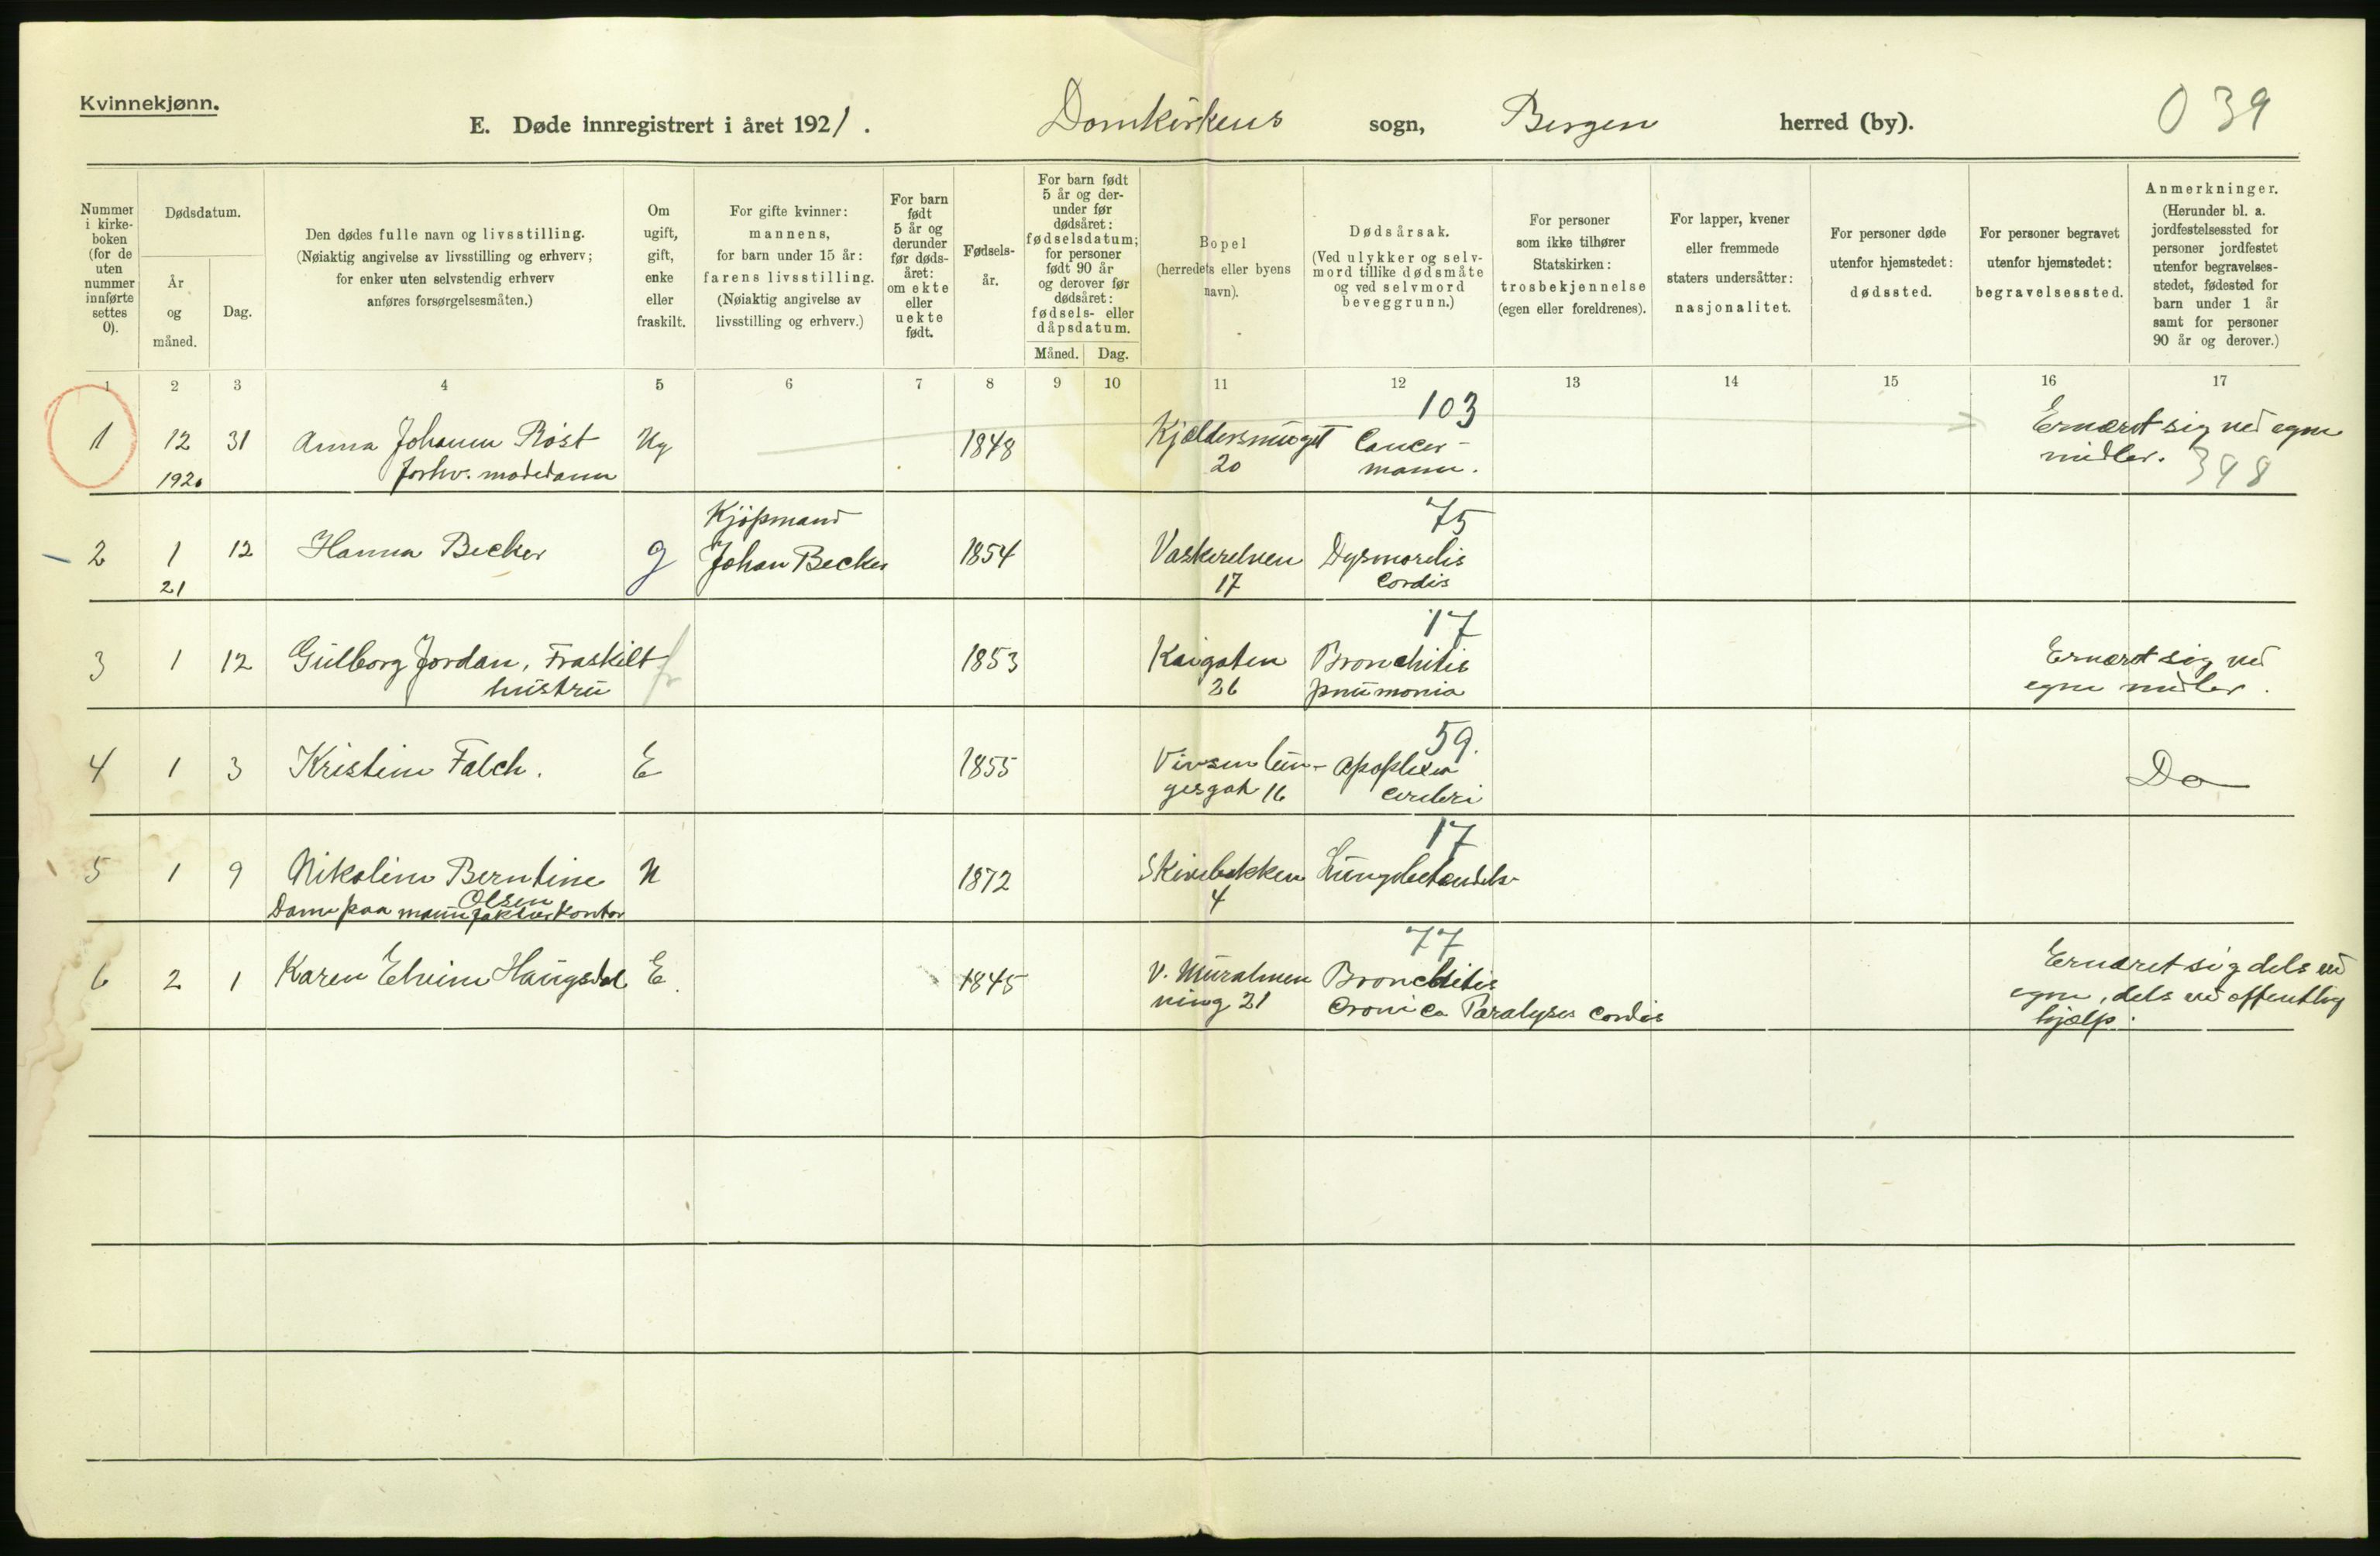 Kvinnekjønn.
E. Døde innregistrert i året 1921.
Domkirkens sogn, Bergen herred (by).
039
Nummer i kirke-boken (for de uten nummer innførte settes 0).
Dødsdatum.
År og måned.
Dag.
Den dødes fulle navn og livsstilling.
(Nøiaktig angivelse av livsstilling og erhverv;
for enker uten selvstendig erhverv
anføres forsørgelsesmåten.)
Om ugift, gift, enke eller fraskilt.
For gifte kvinner:
mannens,
for barn under 15 år:
farens livsstilling.
(Nøiaktig angivelse av
livsstilling og erhverv.)
For barn født 5 år og derunder før døds-året: om ekte eller uekte født.
Fødsels-år.
For barn født 5 år og der-under før dødsåret: fødselsdatum; for personer født 90 år og derover før dødsåret: fødsels- eller dåpsdatum.
Måned. Dag.
Bopel
(herredets eller byens
navn).
Dødsårsak.
(Ved ulykker og selv-
mord tillike dødsmåte
og ved selvmord
beveggrunn.)
For personer
som ikke tilhører
Statskirken:
trosbekjennelse
(egen eller foreldrenes).
For lapper, kvener
eller fremmede
staters undersåtter:
nasjonalitet.
For personer døde
utenfor hjemstedet:
dødssted.
For personer begravet
utenfor hjemstedet:
begravelsessted.
Anmerkninger.
(Herunder bl. a.
jordfestelsessted for
personer jordfestet
utenfor begravelses-
stedet, fødested for
barn under 1 år
samt for personer
90 år og derover.)
1 2 3 4 5 6 7 8 9 10 11 12 13 14 15 16 17
103
1 12 31 Anna Johanne Röst Ug 1848 Kjældersmuget Cancer Ernæret sig ved egne
1920 Forhv. 20 mamm. midler. 398
Kjöpmand 75
2 1 12 Hanna Becker g Johan Becker 1854 Vaskerelven
21 17 Cordis
17
3 1 12 Gulborg Jordan, Fraskilt fr 1853 Kaigaten Bronchitis Ernæret sig ved
hustru 26 pnumonia egne midler.
59.
4 1 3 Kristine Falch. E 1855 Apoplexia Do
16 cerebri
17
5 1 9 Nikoline Berntine U 1872 Skivebakken Lungebetændelse
Olsen 4
Dame paa manufakturkontor
77
6 2 1 Karen Elvine Haugsdal E. 1845 V. Muralmen Bronchitis Ernæret sig dels ved
ning 21 Cronica Paralyses Cordis egne, dels ved offentlig
hjælp.